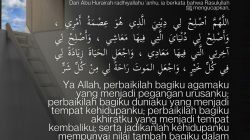 Dari Abu Hurairah radhiyallahu 'anhu, ia berkata bahwa Rasulullah
mengucapkan,
اللَّهُمَّ أَصْلِحْ لِي دِينِيَ الَّذِي هُوَ عِصْمَةُ أَمْرِي ،
وَأَصْلِحْ لِي دُنْيَايَ الَّتِي فِيهَا مَعَاشِي ، وَأَصْلِحْ لِي
آخِرَتِي الَّتِي فِيهَا مَعَادِي ، وَاجْعَلِ الْحَيَاةَ زِيَادَةً لِي
فِي كُلِّ خَيْرٍ ، وَاجْعَلِ الْمَوْتَ رَاحَةً لِي مِنْ كُلِّ شَرٍّ
Ya Allah, perbaikilah bagiku agamaku
yang menjadi pegangan urusanku;
perbaikilah bagiku duniaku yang menjadi
tempat kehidupanku; perbaikilah bagiku
akhiratku yang menjadi tempat
kembaliku; serta jadikanlah kehidupanku
mempunyai nilai tambah bagiku dalam